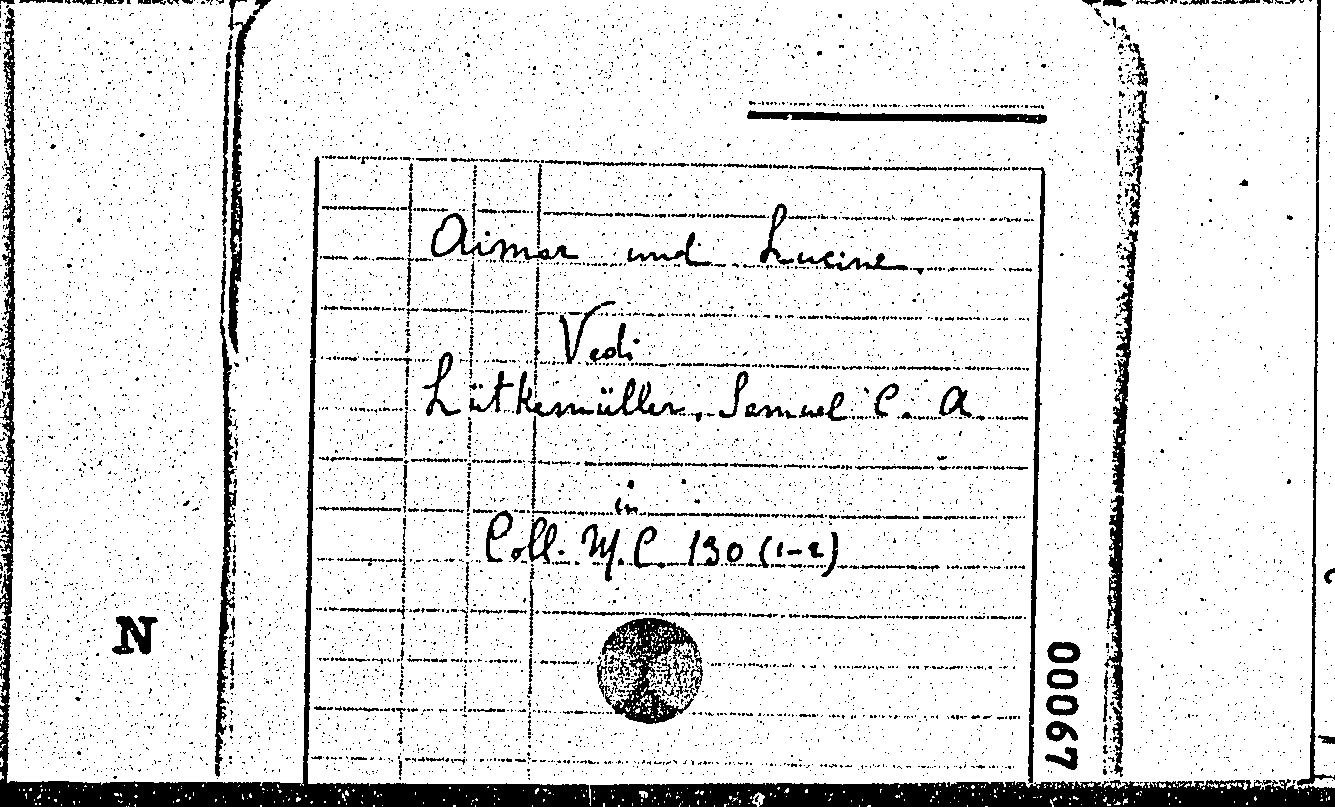 Aimar und Lucine.
Vedi
Lütkemüller, Samuel C. A.
in
Coll. M. C. 130 (1-2)
N
00067